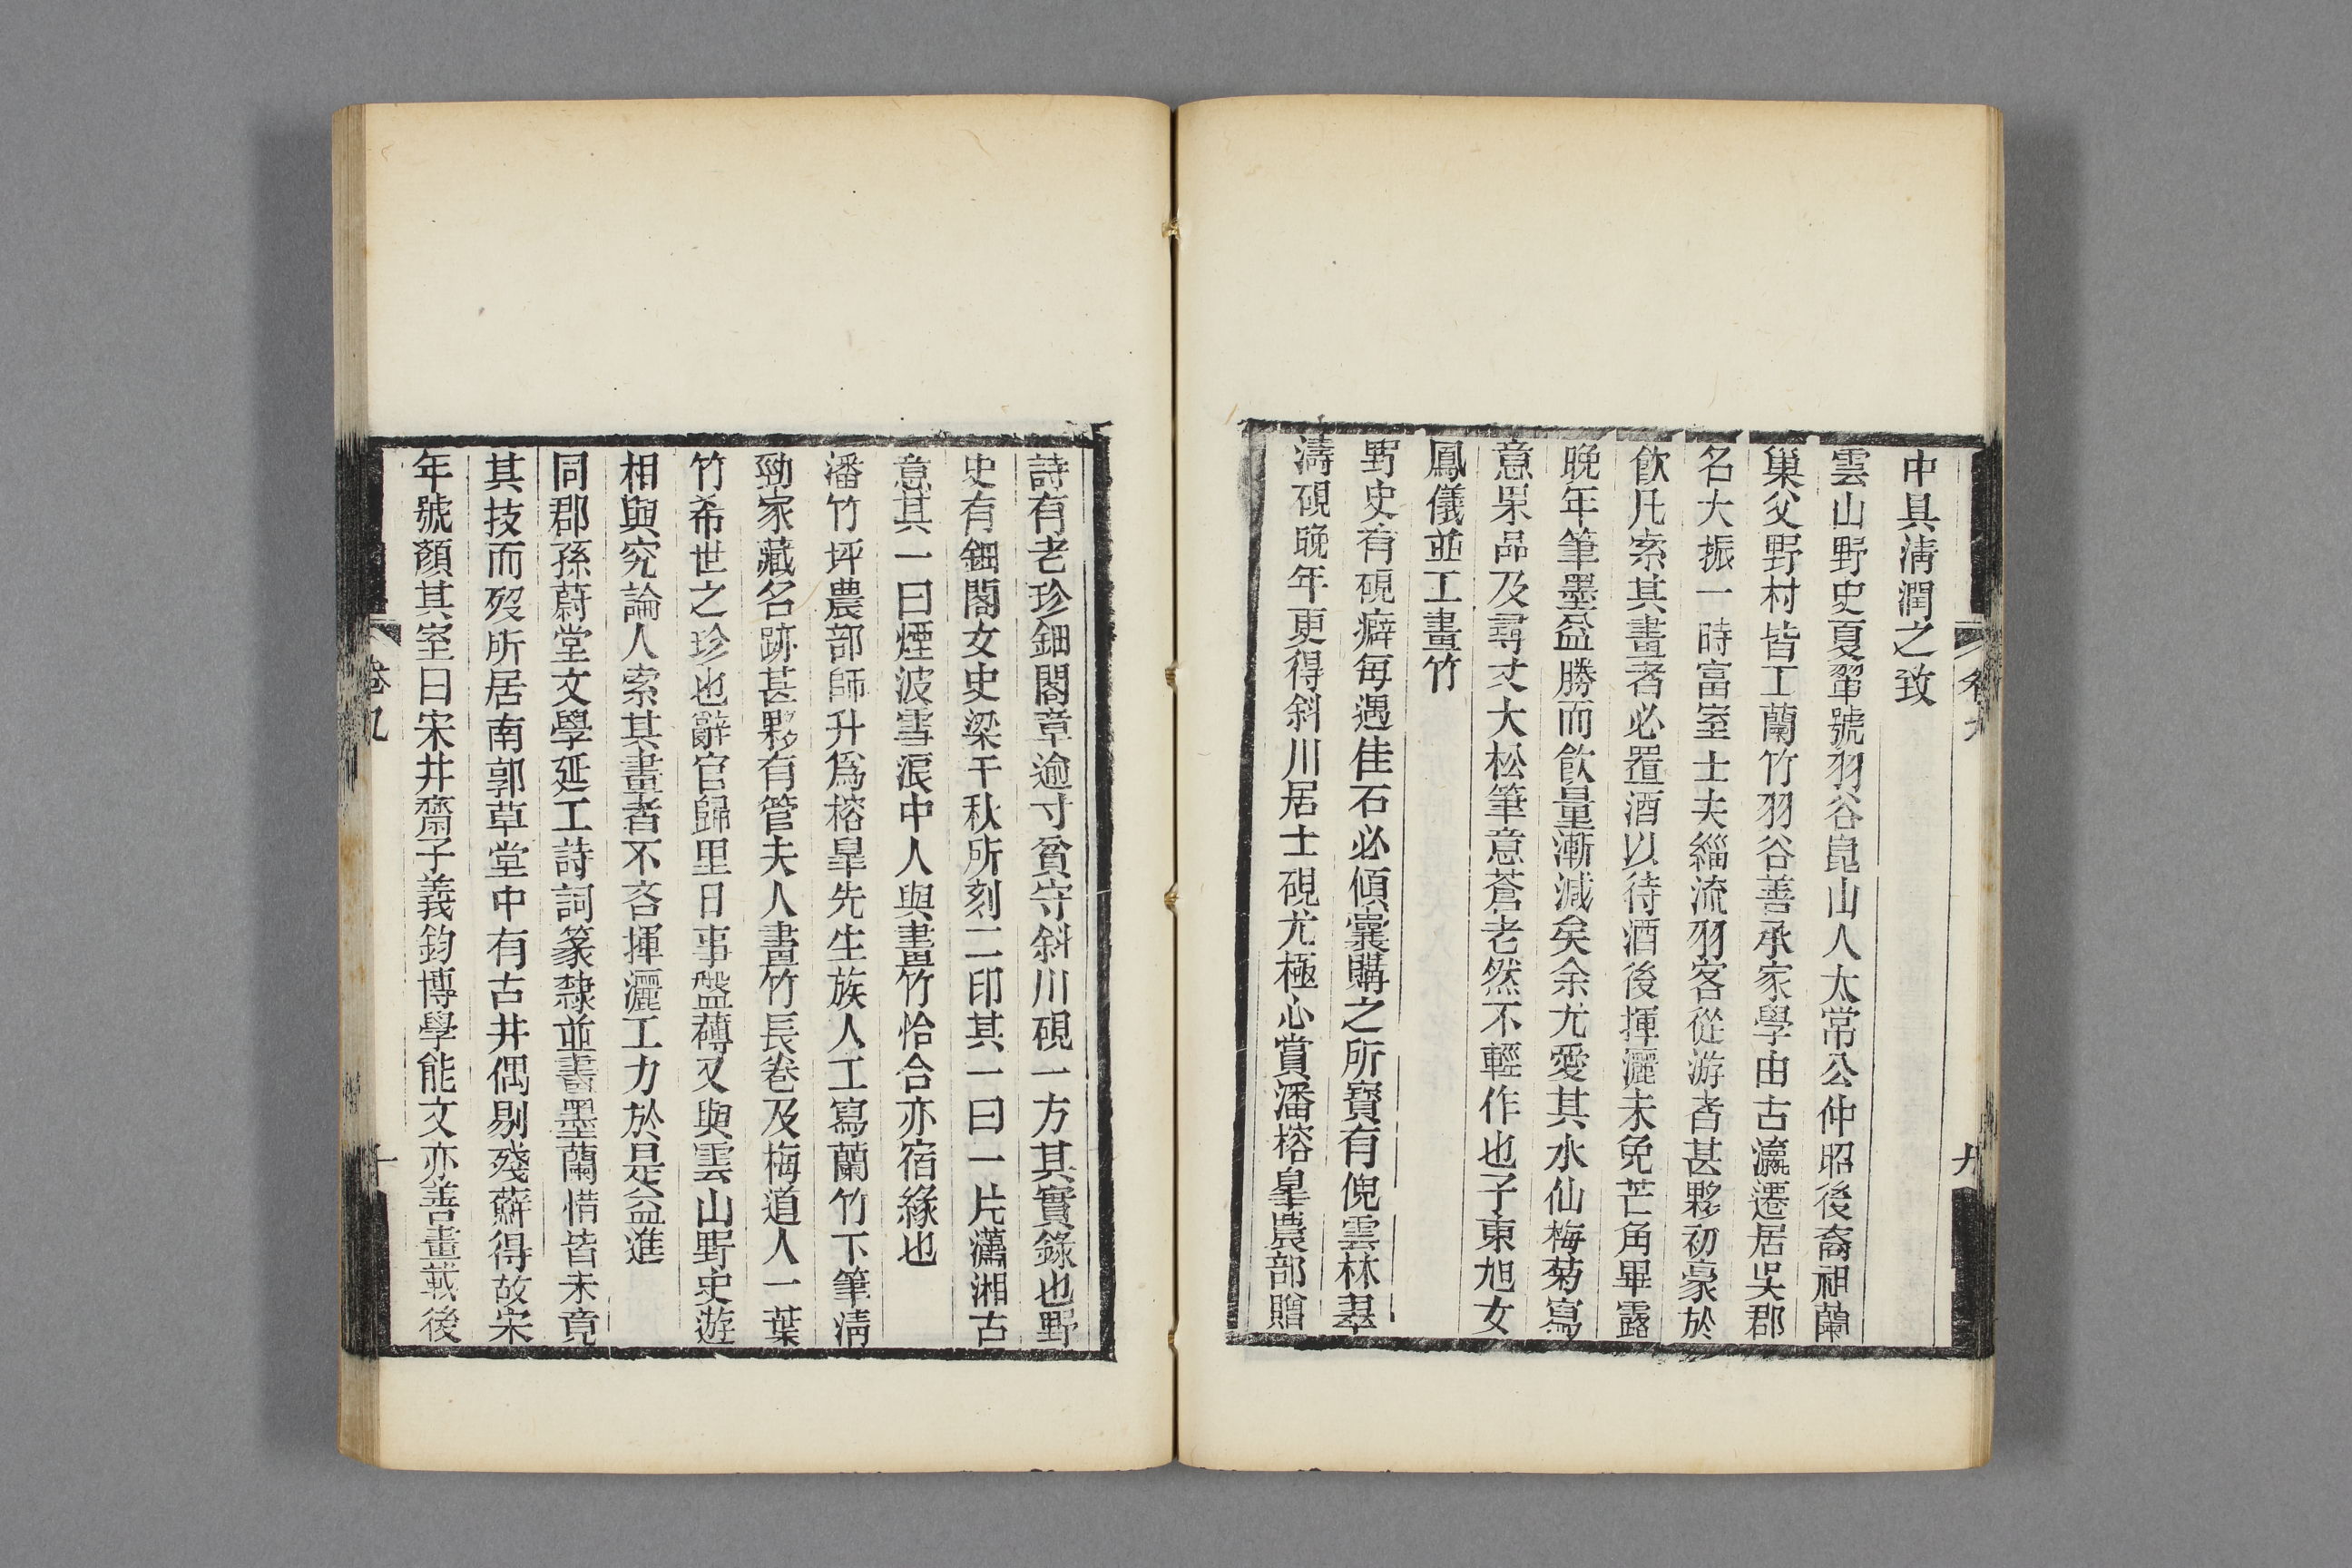 中具淸潤之致
雲山野史夏翬號羽谷崑山人太常公仲昭後裔祖蘭
巢父野村皆工蘭竹羽谷善承家學由古瀛遷居吳郡
名大振一時富室士夫緇流羽客從游者甚夥初豪於
飮凡索其畫者必置酒以待酒後揮灑未免芒角畢露
晚年筆墨益勝而飮量漸減矣余尤愛其水仙梅菊寫
意果品及尋丈大松筆意蒼老然不輕作也子東旭女
鳳儀並工畫竹
野史有硯癖每遇佳石必傾囊購之所寶有倪雲林翠
濤硯晚年更得斜川居士硯尤極心賞潘榕臯農部贈
詩有老珍鈿閣章逾寸貧守斜川硯一方其實錄也野
史有鈿閣女史梁千秋所刻二印其一曰一片瀟湘古
意其一曰煙波雪浪中人與畫竹恰合亦宿緣也
潘竹坪農部師升爲榕臯先生族人工寫蘭竹下筆淸
勁家藏名跡甚夥有管夫人畫竹長卷及梅道人一葉
竹希世之珍也辭官歸里日事盤薄又與雲山野史遊
相與究論人索其畫者不吝揮灑工力於是益進
同郡孫蔚堂文學延工詩詞篆隸並畫墨蘭惜皆未竟
其技而歿所居南郭草堂中有古井偶剔殘蘚得故宋
年號顏其室曰宋井齋子義鈞博學能文亦善畫載後
卷九
十